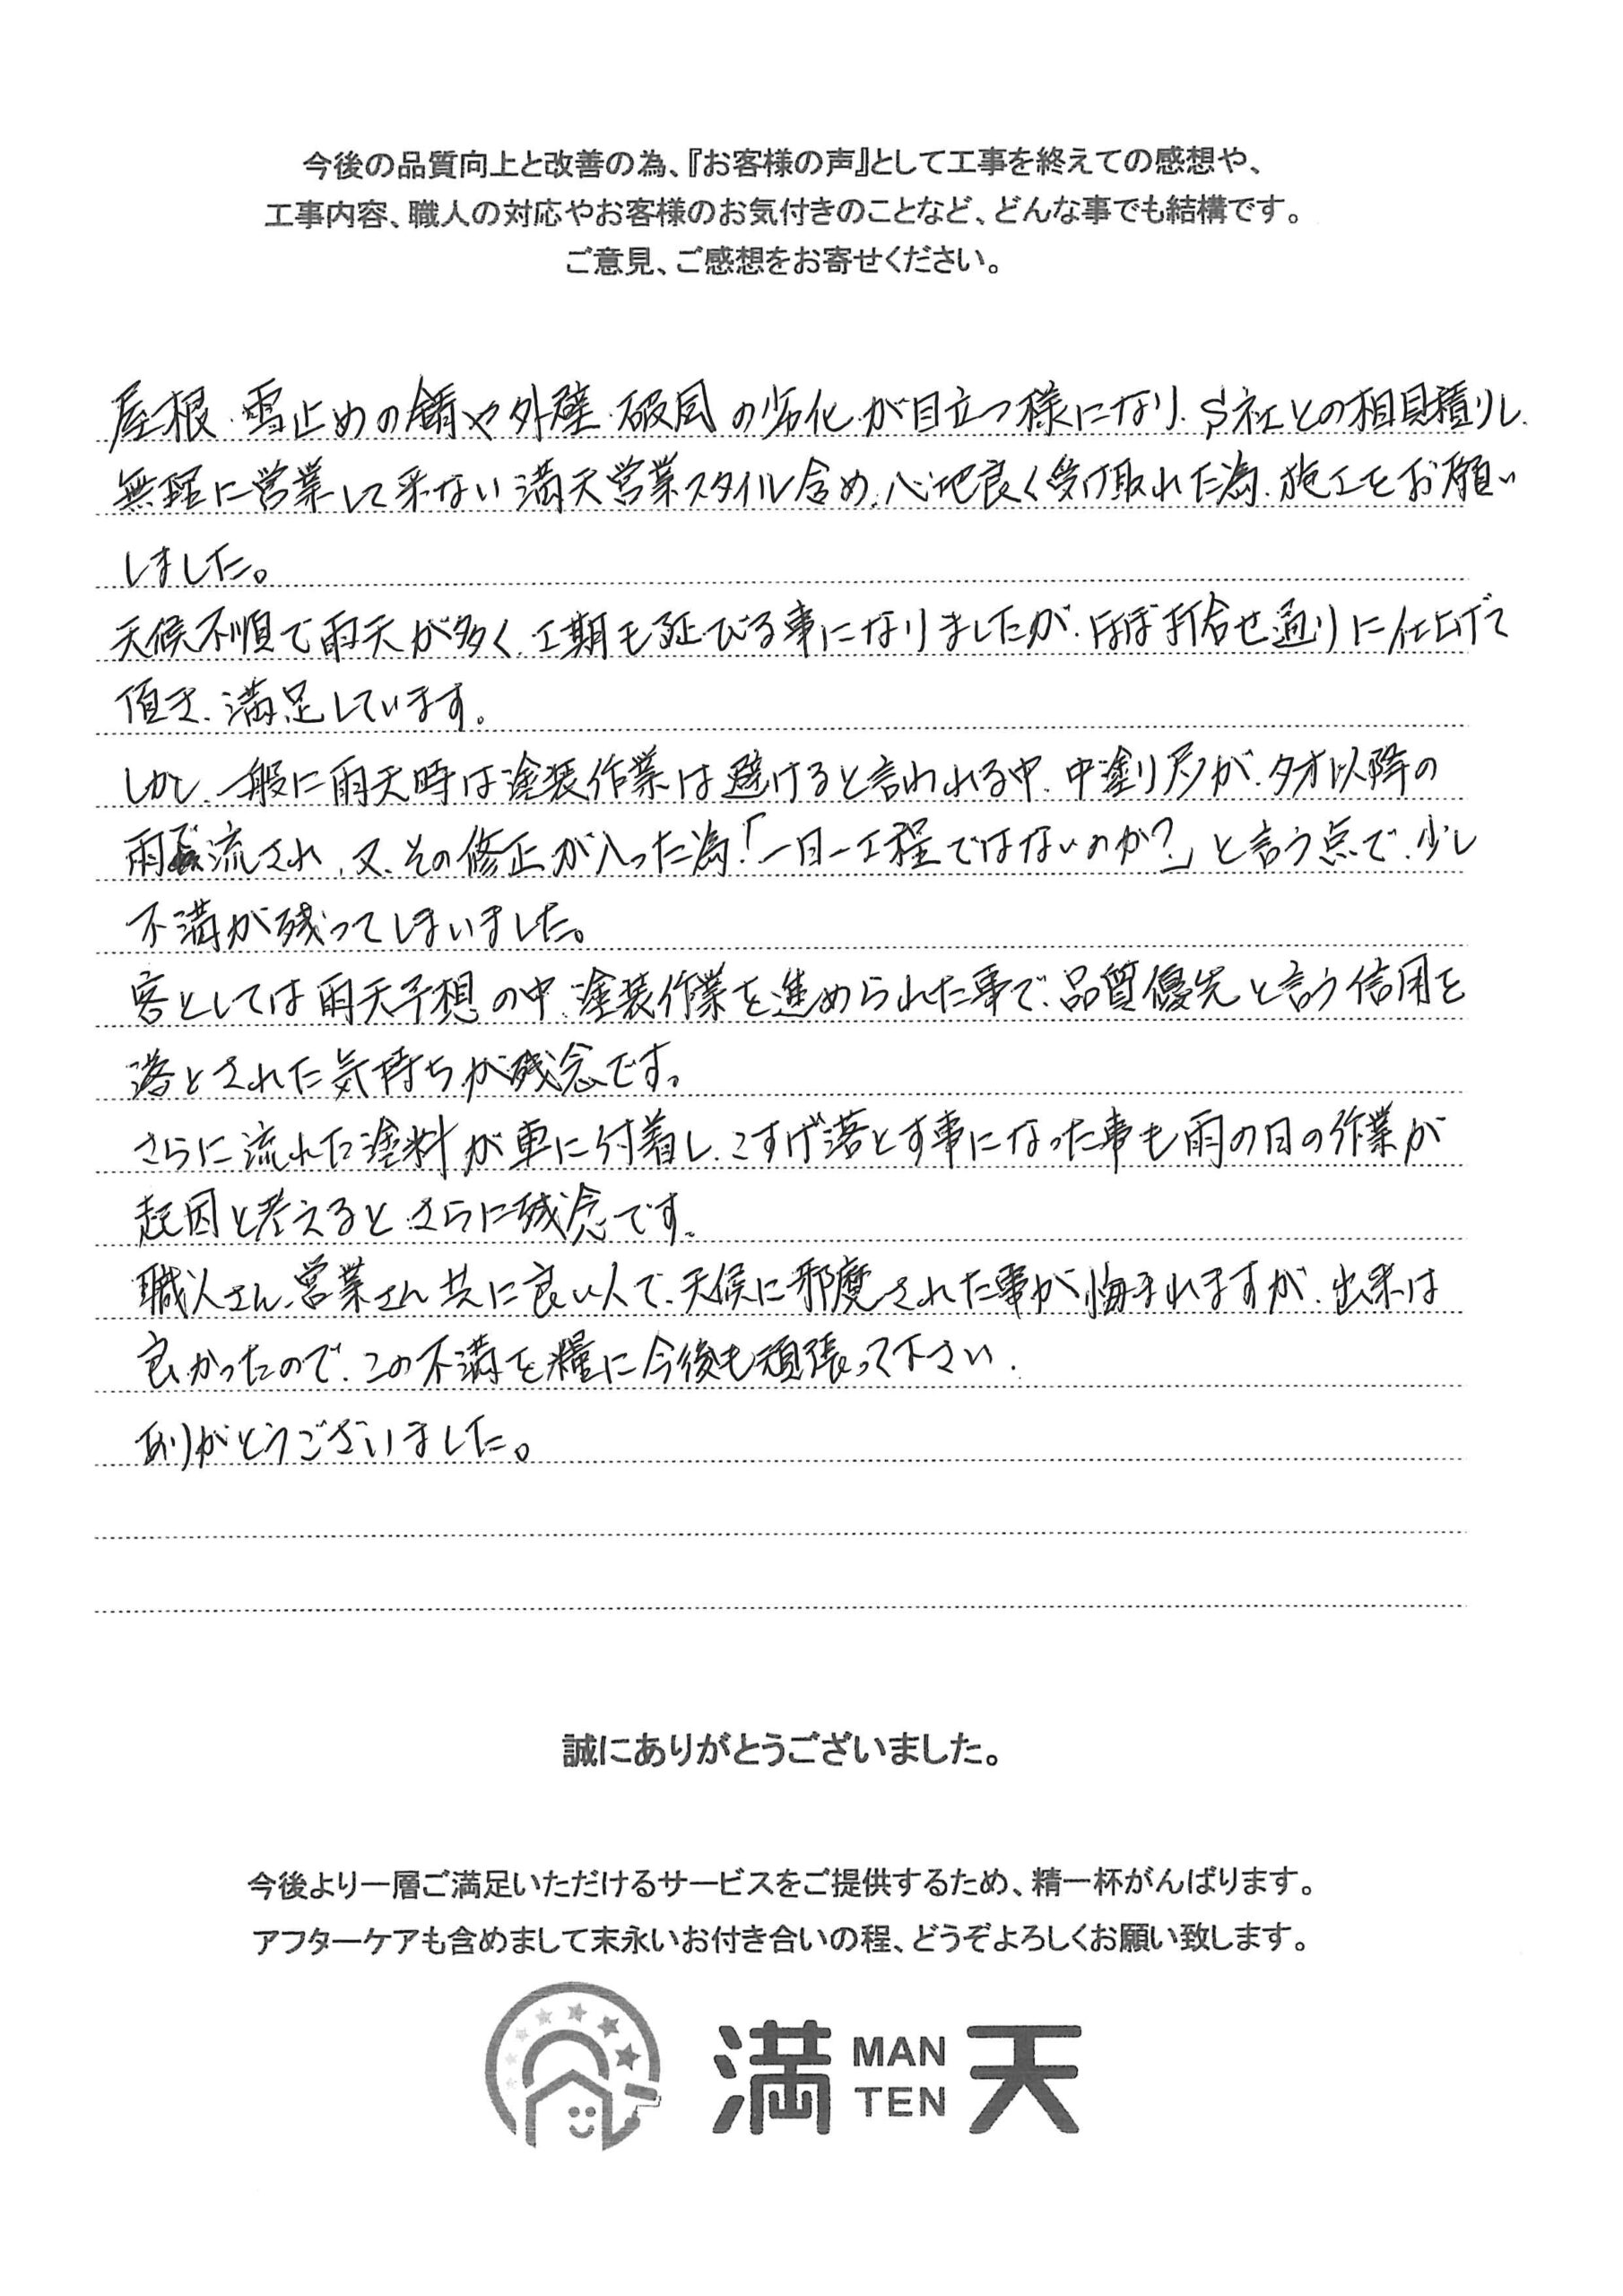 今後の品質向上と改善の為、『お客様の声』として工事を終えての感想や、
工事内容、職人の対応やお客様のお気付きのことなど、どんな事でも結構です。
ご意見、ご感想をお寄せください。
屋根、雪止めの錆や外壁、破風の劣化が目立つ様になり、S社との相見積りし、
無理に営業して来ない満天営業スタイル含め、心地良く受け取れた為、施工をお願い
しました。
天候不順で雨天が多く、工期も延びる事になりましたが、ほぼ打合せ通りに仕上げて
頂き、満足しています。
しかし、一般に雨天時は塗装作業は避けると言われる中、中塗り片が、夕方以降の
雨で流され、又、その修正が入った為「一日一工程ではないのか?」と言う点で、少し
不満が残ってしまいました。
客としては雨天予想の中、塗装作業を進められた事で、品質優先と言う信用を
落とされた気持ちが残念です。
さらに流れた塗料が車に付着し、こすげ落とす事になった事も雨の日の作業が
起因と考えると、さらに残念です。
職人さん、営業さん共に良い人で、天候に邪魔された事が悔まれますが、出来は
良かったので、この不満を糧に今後も頑張って下さい.
ありがとうございました。
誠にありがとうございました。
今後より一層ご満足いただけるサービスをご提供するため、精一杯がんばります。
アフターケアも含めまして末永いお付き合いの程、どうぞよろしくお願い致します。
満 MAN TEN 天